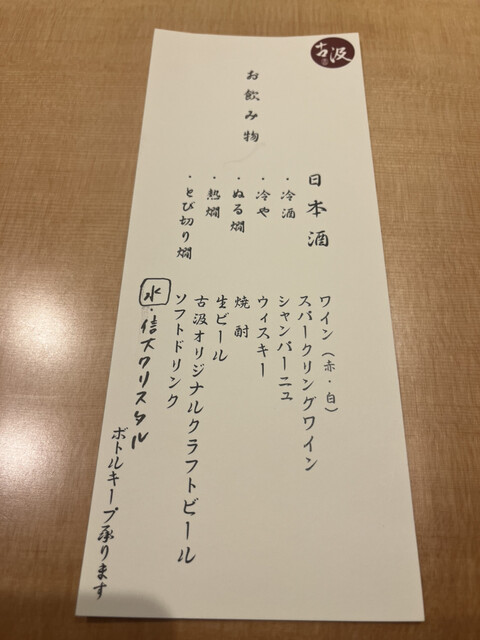 古汲
お飲み物
日本酒
・冷酒
・冷や
・ぬる燗
・熱燗
・とび切り燗
ワイン（赤・白）
スパークリングワイン
シャンパーニュ
ウィスキー
焼酎
生ビール
古汲オリジナルクラフトビール
ソフトドリンク
水・信大クリスタル
ボトルキープ承ります